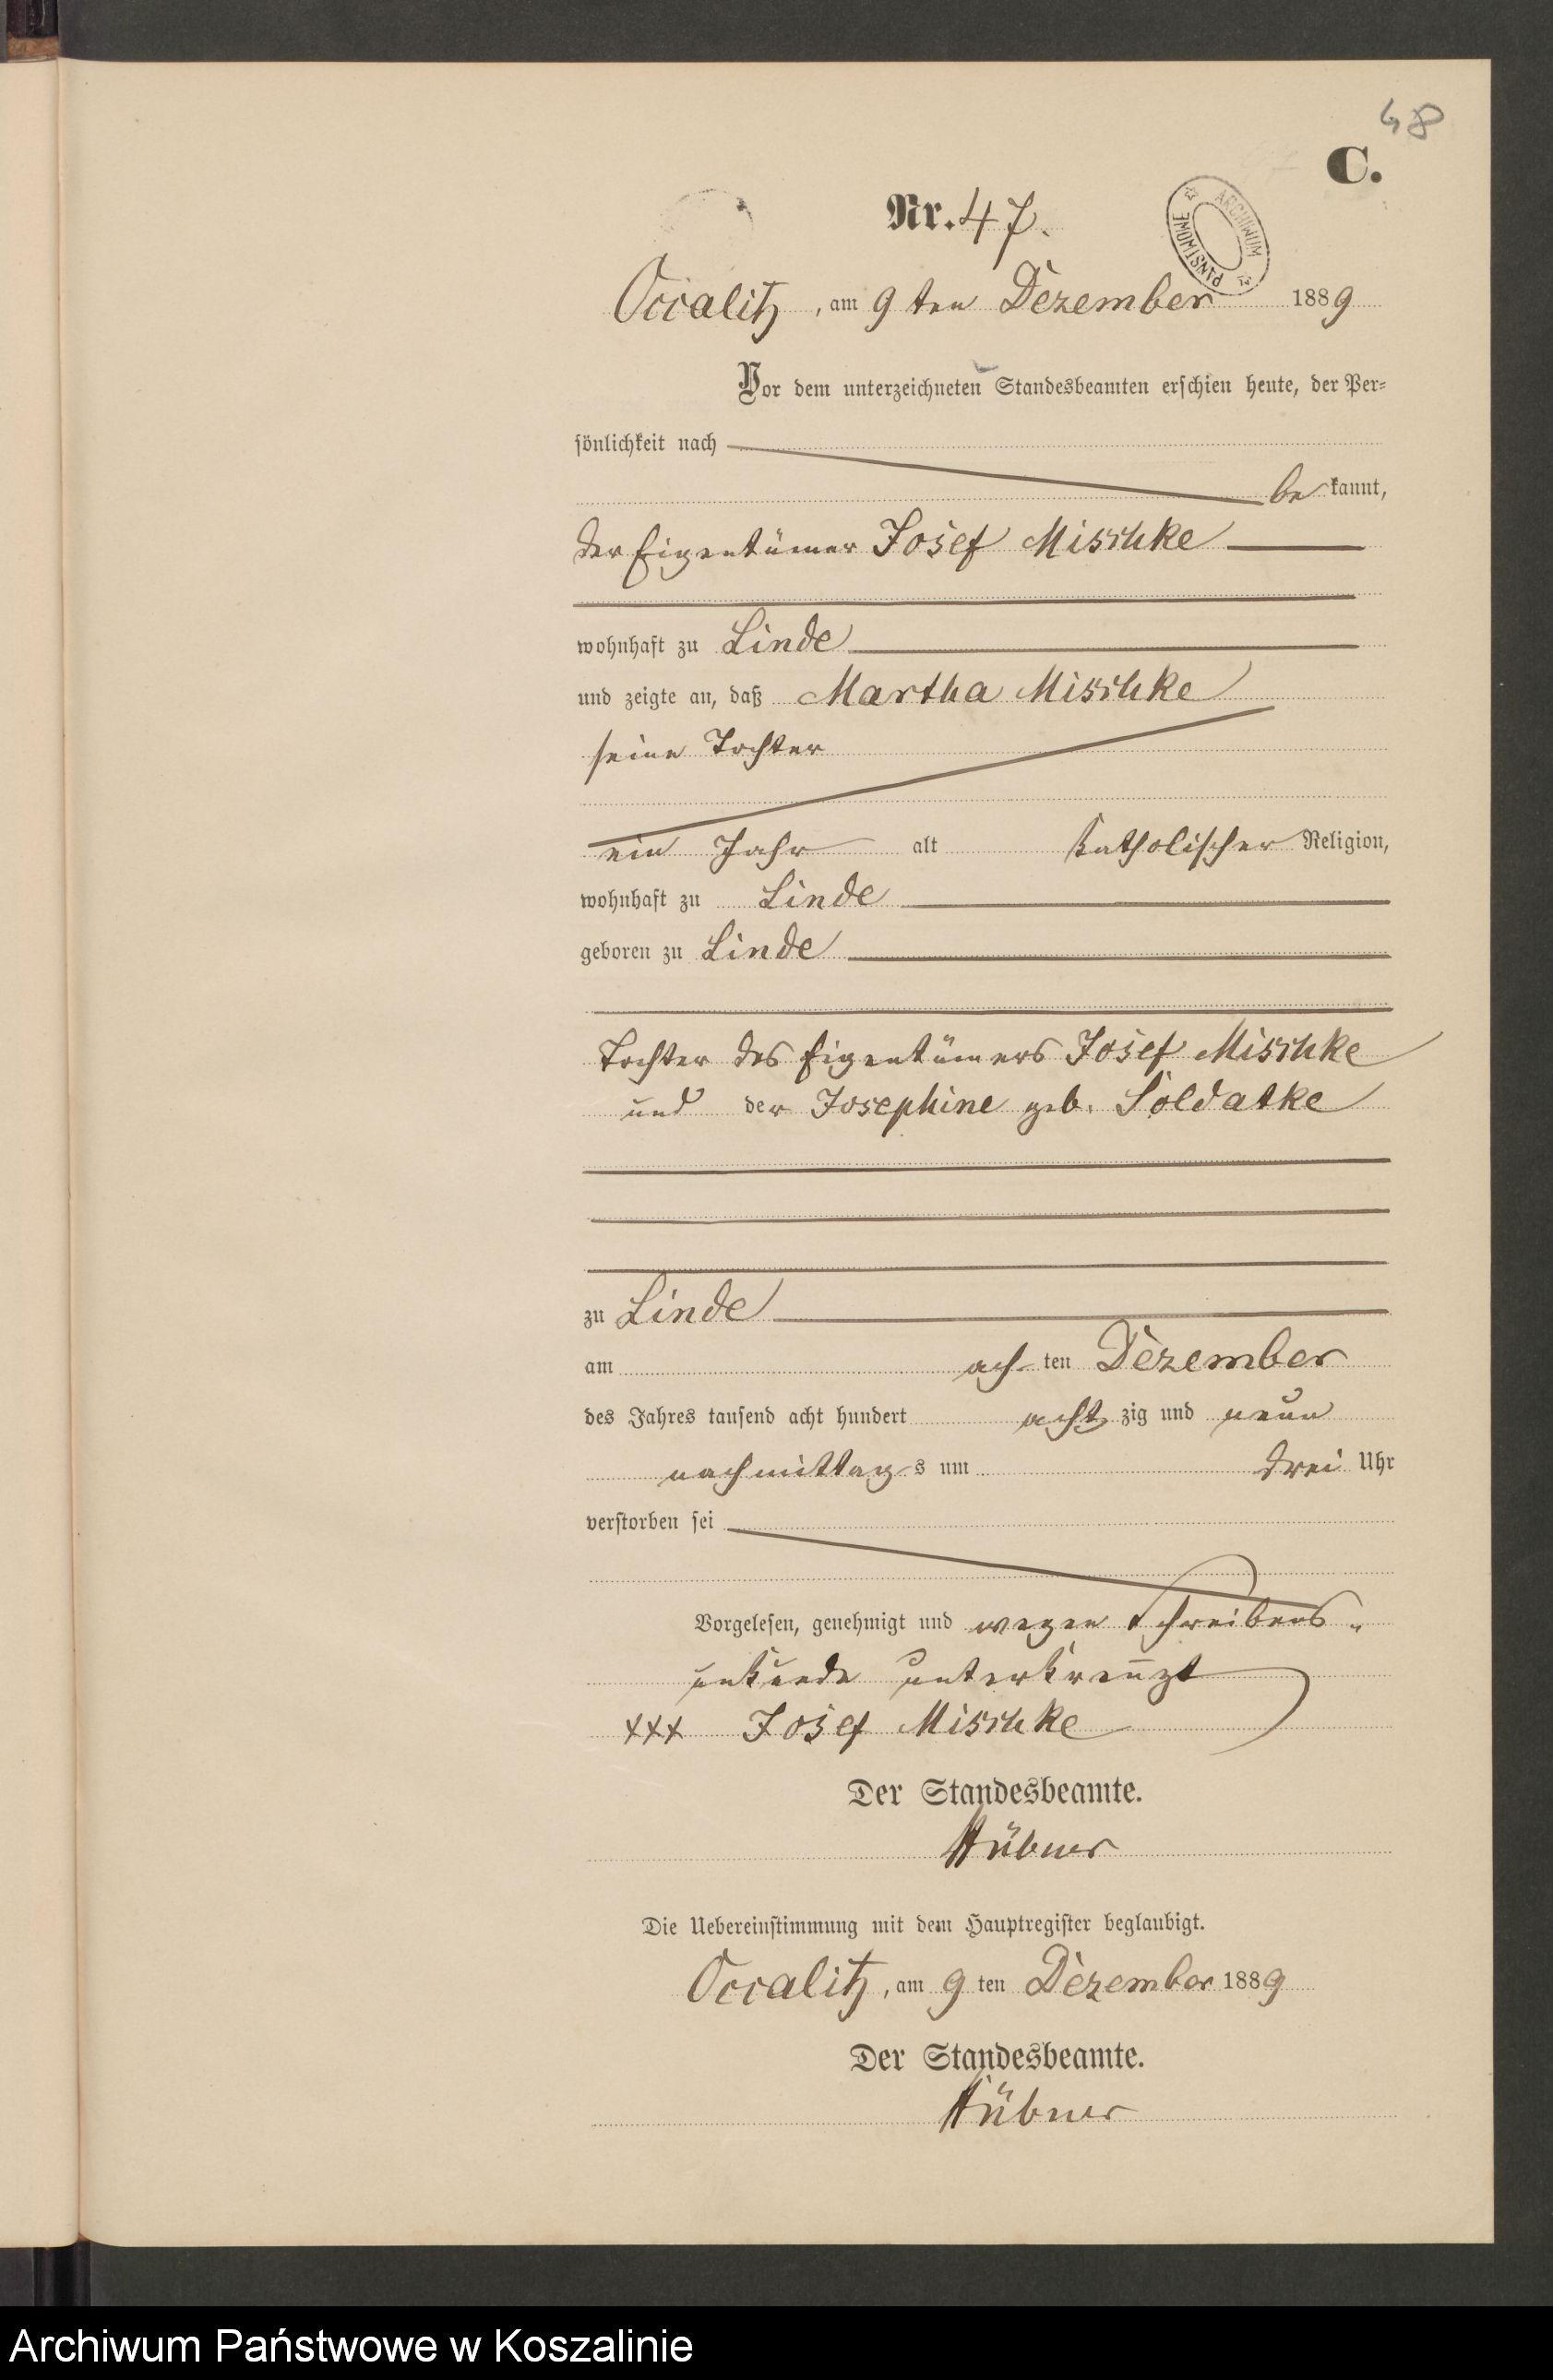 48
C.
Nr. 47.
ARCHIWUM PAŃSTWOWE
Occalitz, am 9 ten Dezember 1889
Vor dem unterzeichneten Standesbeamten erschien heute, der Per-
sönlichkeit nach
be kannt,
der Eigentümer Josef Mischke
wohnhaft zu Linde
und zeigte an, daß Martha Mischke
seine Tochter
ein Jahr alt katholischer Religion,
wohnhaft zu Linde
geboren zu Linde
Tochter des Eigentümers Josef Mischke
und der Josephine geb. Soldatke
zu Linde
am ach ten Dezember
des Jahres tausend acht hundert acht zig und neun
nachmittag s um drei Uhr
verstorben sei
Vorgelesen, genehmigt und wegen Schreibens-
unkunde unterkreuzt
xxx Josef Mischke
Der Standesbeamte.
Hübner
Die Uebereinstimmung mit dem Hauptregister beglaubigt.
Occalitz, am 9 ten Dezember 1889
Der Standesbeamte.
Hübner
Archiwum Państwowe w Koszalinie